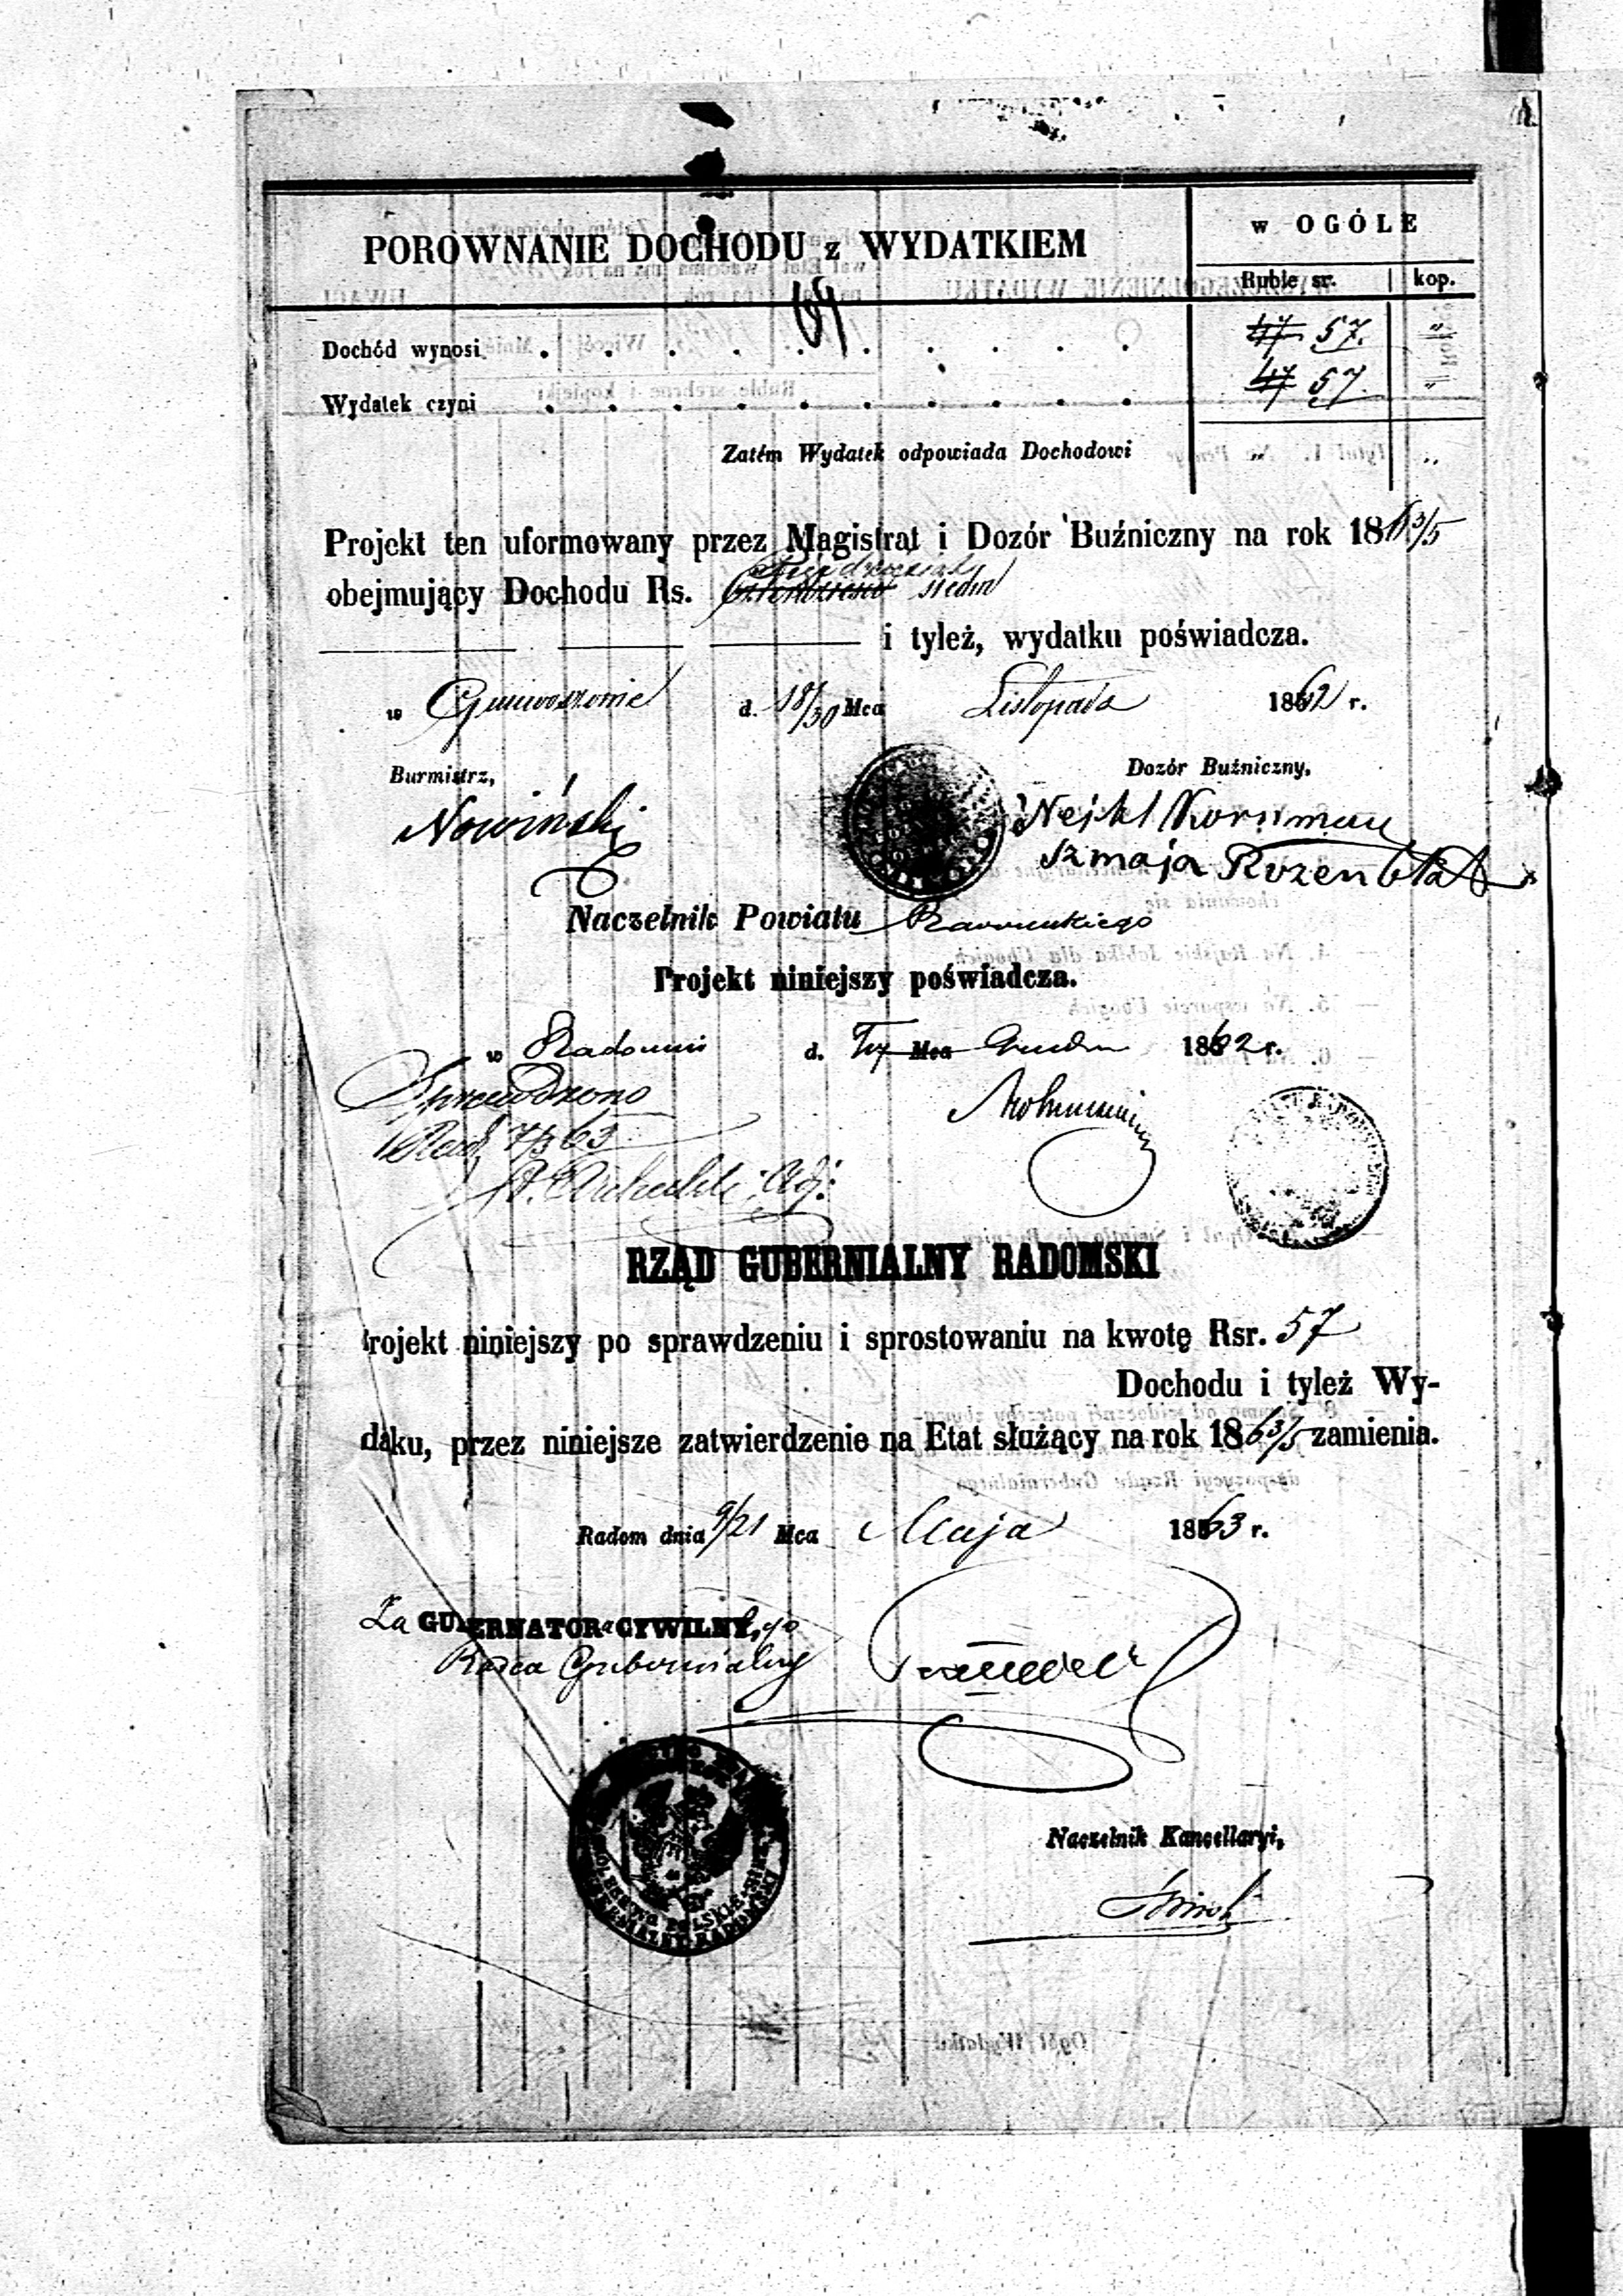 POROWNANIE DOCHODU z WYDATKIEM
w OGÓLE
Ruble sr. kop.
64
Dochód wynosi 47 57. „
Wydatek czyni 47 57. „
Zatém Wydatek odpowiada Dochodowi „ „
Projekt ten uformowany przez Magistrat i Dozór Buźniczny na rok 1863/5
Pięćdziesiąt
obejmujący Dochodu Rs. Czterdzieści siedm
i tyleż, wydatku poświadcza.
w Gniwoszowie d. 18/30 Mca Listopada 1862 r.
Burmistrz, Dozór Buźniczny,
Nowiński
Szmaja Rozenblat
Naczelnik Powiatu Radomskiego
Projekt niniejszy poświadcza.
w Radomiu d. Mca Grudn 1862 r.
Sprawdzono
Rad. 7/3 63
Adj:
RZĄD GUBERNIALNY RADOMSKI
rojekt niniejszy po sprawdzeniu i sprostowaniu na kwotę Rsr. 57
Dochodu i tyleż Wy-
daku, przez niniejsze zatwierdzenie na Etat służący na rok 1863/5 zamienia.
Radom dnia 9/21 Mca Maja 1863 r.
Za GUBERNATORa CYWILNEgo
Radca Gubernialny
Naczelnik Kancellaryi,